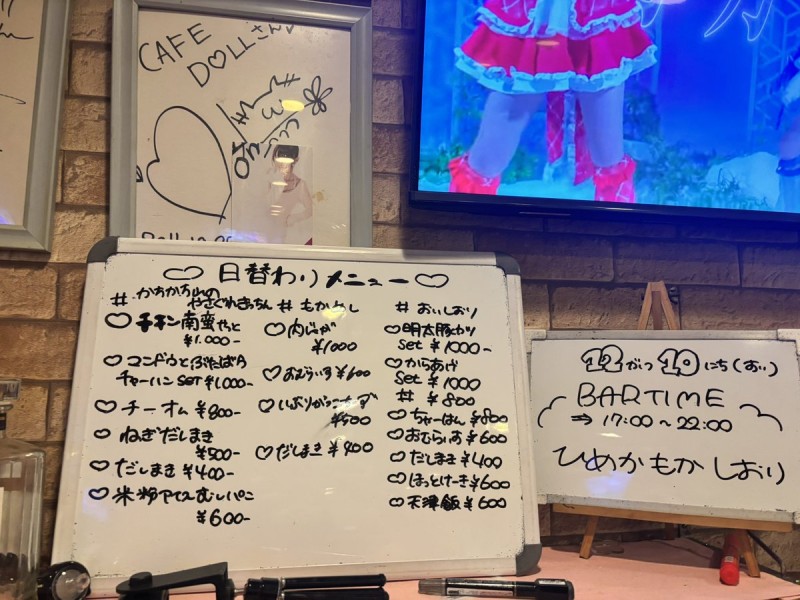 CAFE
DOLLさん♡
♡日替わりメニュー♡
#かちかち山の
やさぐれきっちん
♡チキン南蛮せっと
¥1.000-
♡マンドゥとぶたばら
チャーハンSET ¥1.000-
♡チーオム ¥800-
♡ねぎだしまき
¥500-
♡だしまき ¥400-
♡米粉アイスむしパン
¥600-
#もかめし
♡肉じゃが
¥1000
♡おむらいす ¥600
♡いぶりがっこちーず
¥500
♡だしまき ¥400
#おいしおり
♡明太豚カツ
set ¥1000-
♡からあげ
set ¥1000
# ¥800
♡ちゃーはん ¥800
♡おむらいす ¥600
♡だしまき ¥400
♡ほっとけーき ¥600
♡天津飯 ¥600
12がつ10にち(すい)
BARTIME
⇒ 17:00~22:00
ひめかもかしおり